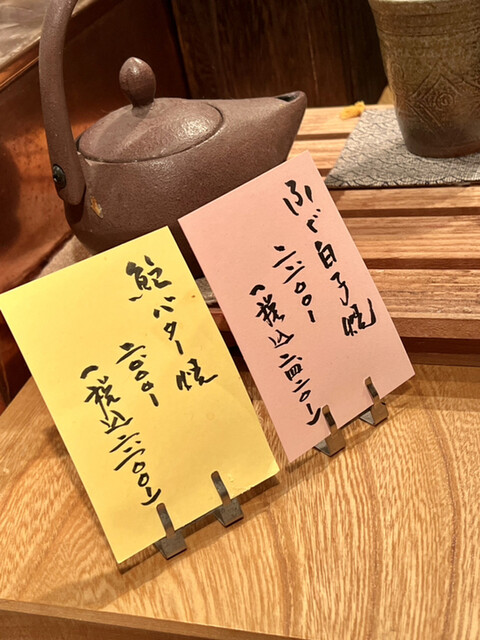 ふぐ白子焼
二二〇〇ー
(税込二四二〇ー)
鮑バター焼
二〇〇〇ー
(税込二二〇〇ー)